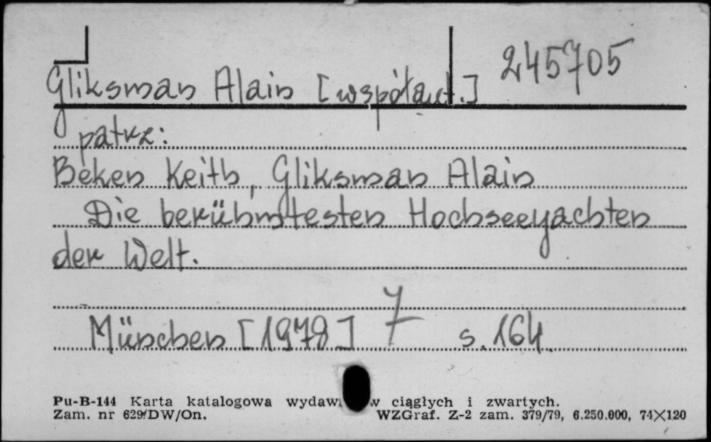 245705
Gliksman Alain [współaut.]
patrz:
Beken Keith, Gliksman Alain
Die berühmtesten Hochseeyachten
der Welt.
München [1978] 7 s. 164
Pu-B-144 Karta katalogowa wydaw w ciągłych i zwartych.
Zam. nr 629/DW/On. WZGraf. Z-2 zam. 379/79, 6.250.000, 74×120